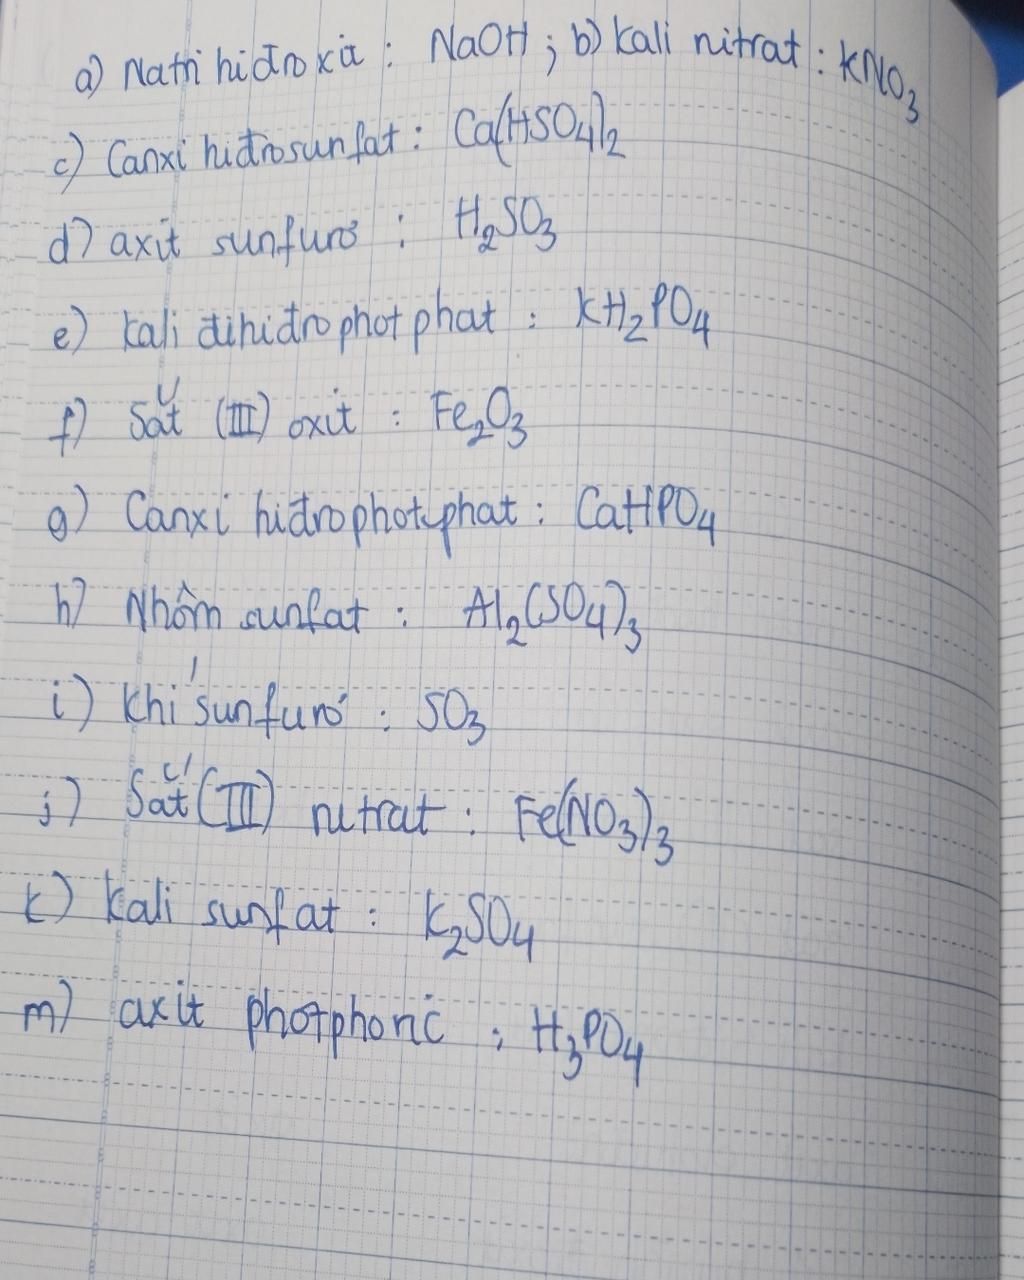 a) Natri hiđroxit : NaOH ; b) Kali nitrat : KNO3
c) Canxi hiđrosunfat : Ca(HSO4)2
d) axit sunfurơ : H2SO3
e) Kali đihiđrophotphat : KH2PO4
f) Sắt (III) oxit : Fe2O3
g) Canxi hiđrophotphat : CaHPO4
h) Nhôm sunfat : Al2(SO4)3
i) Khí sunfurơ : SO3
j) Sắt (III) nitrat : Fe(NO3)3
k) Kali sunfat : K2SO4
m) axit photphoric : H3PO4